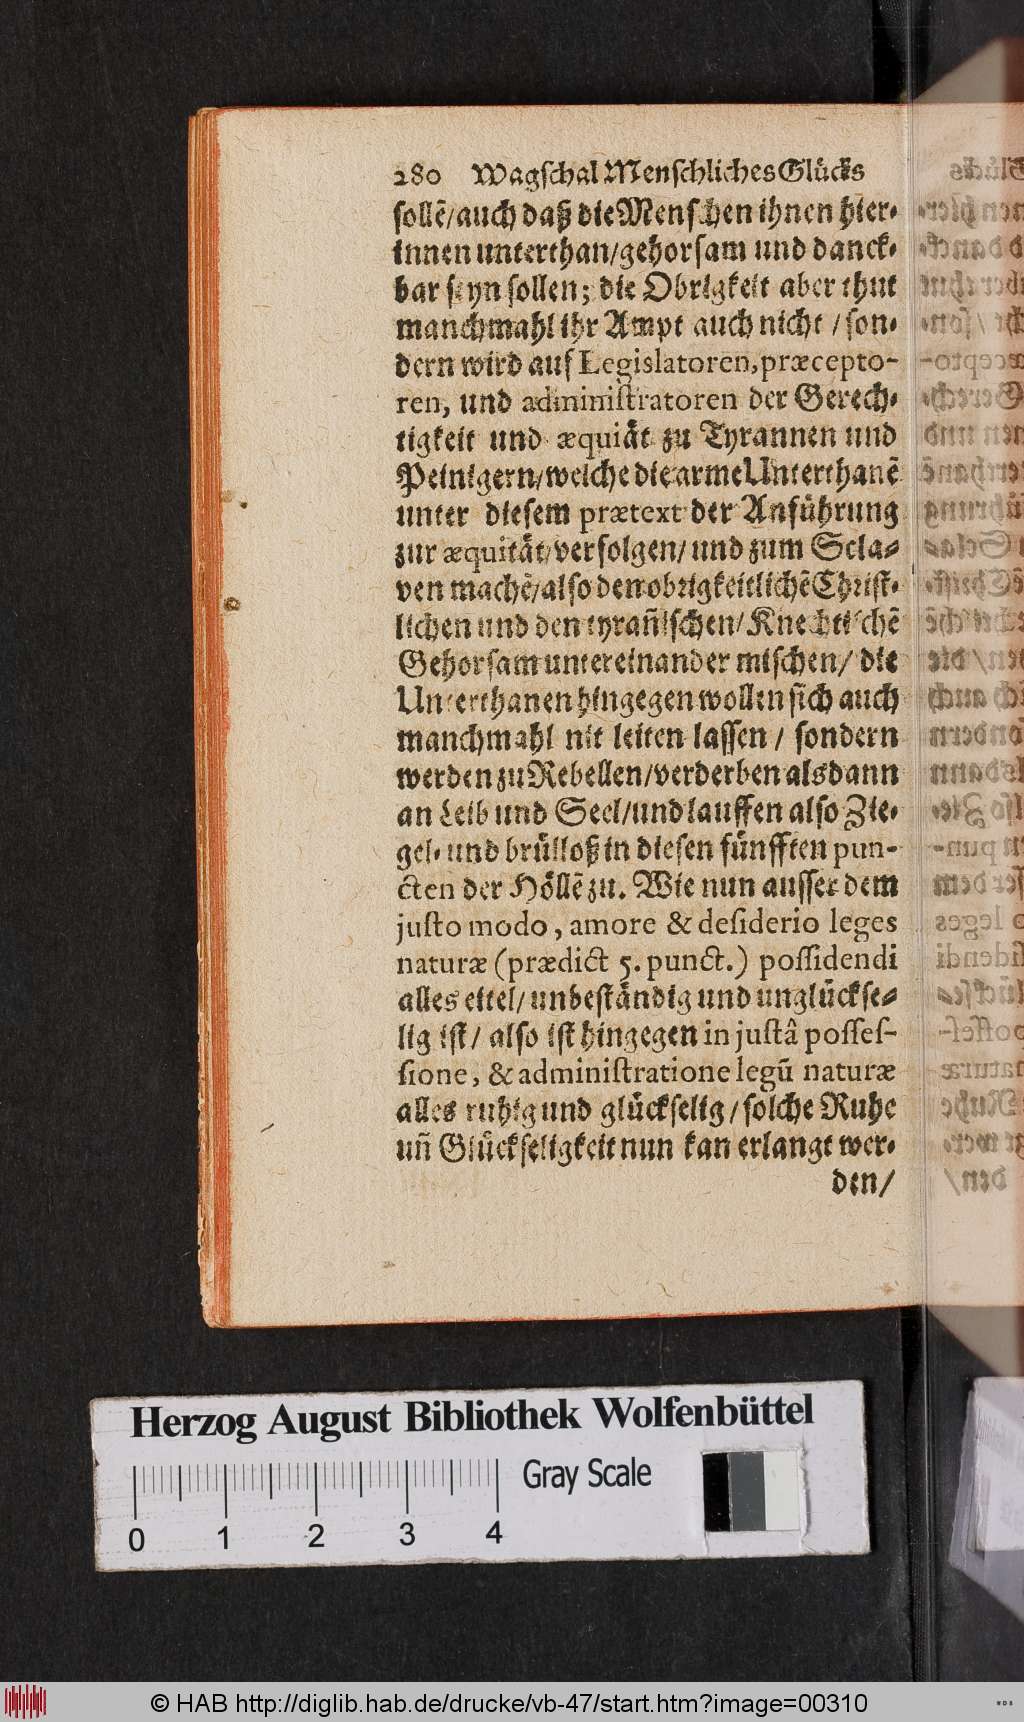 280 Wagschal Menschliches Glücks
sollē/auch daß die Menschen ihnen hier-
innen unterthan/gehorsam und danck-
bar seyn sollen; die Obrigkeit aber thut
manchmahl ihr Ampt auch nicht / son-
dern wird auf Legislatoren, præcepto-
ren, und administratoren der Gerech-
tigkeit und æquiät zu Tyrannen und
Peinigern/welche die arme Unterthanē
unter diesem prætext der Anführung
zur æquität/verfolgen/ und zum Scla-
ven machē/also den obrigkeitlichē Christ-
lichen und den tyrañischen/Knechtischē
Gehorsam untereinander mischen/ die
Unterthanen hingegen wollen sich auch
manchmahl nit leiten lassen / sondern
werden zu Rebellen/verderben alsdann
an Leib und Seel/und lauffen also Zie-
gel- und brülloß in diesen fünfften pun-
cten der Höllē zu. Wie nun ausser dem
justo modo, amore & desiderio leges
naturæ (prædict 5. punct.) possidendi
alles eitel/ unbeständig und unglückse-
lig ist/ also ist hingegen in justâ posses-
sione, & administratione legū naturæ
alles ruhig und glückselig/solche Ruhe
uñ Glückseligkeit nun kan erlangt wer-
den/
Herzog August Bibliothek Wolfenbüttel
Gray Scale
0 1 2 3 4
© HAB http://diglib.hab.de/drucke/vb-47/start.htm?image=00310